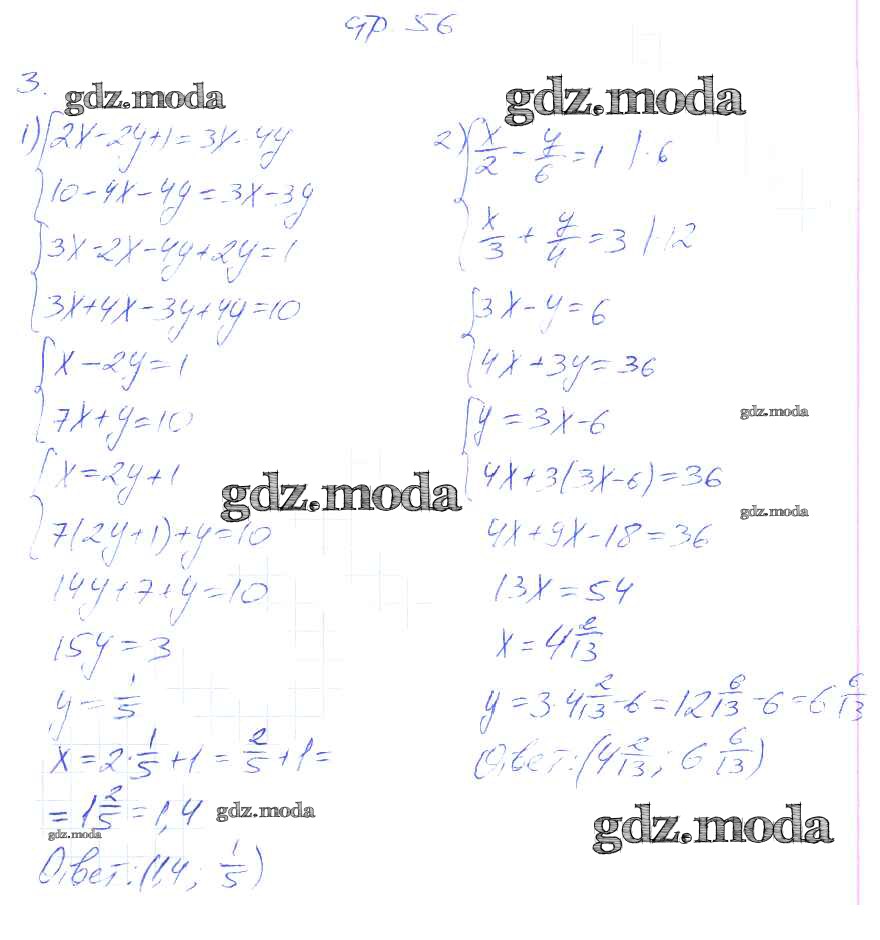 стр. 56
3.
gdz.moda
gdz.moda
1) {2x-2y+1=3x-4y
{10-4x-4y=3x-3y
{3x-2x-4y+2y=1
{3x+4x-3y+4y=10
{x-2y=1
{7x+y=10
{x=2y+1
{7(2y+1)+y=10
14y+7+y=10
15y=3
y=1/5
x=2·1/5+1=2/5+1=
=1 2/5=1,4
gdz.moda
gdz.moda
Ответ:(1,4; 1/5)
gdz.moda
2) {x/2 - y/6=1 |·6
{x/3 + y/4=3 |·12
{3x-y=6
{4x+3y=36
gdz.moda
{y=3x-6
{4x+3(3x-6)=36
gdz.moda
4x+9x-18=36
13x=54
x=4 2/13
y=3·4 2/13-6=12 6/13-6=6 6/13
Ответ:(4 2/13; 6 6/13)
gdz.moda